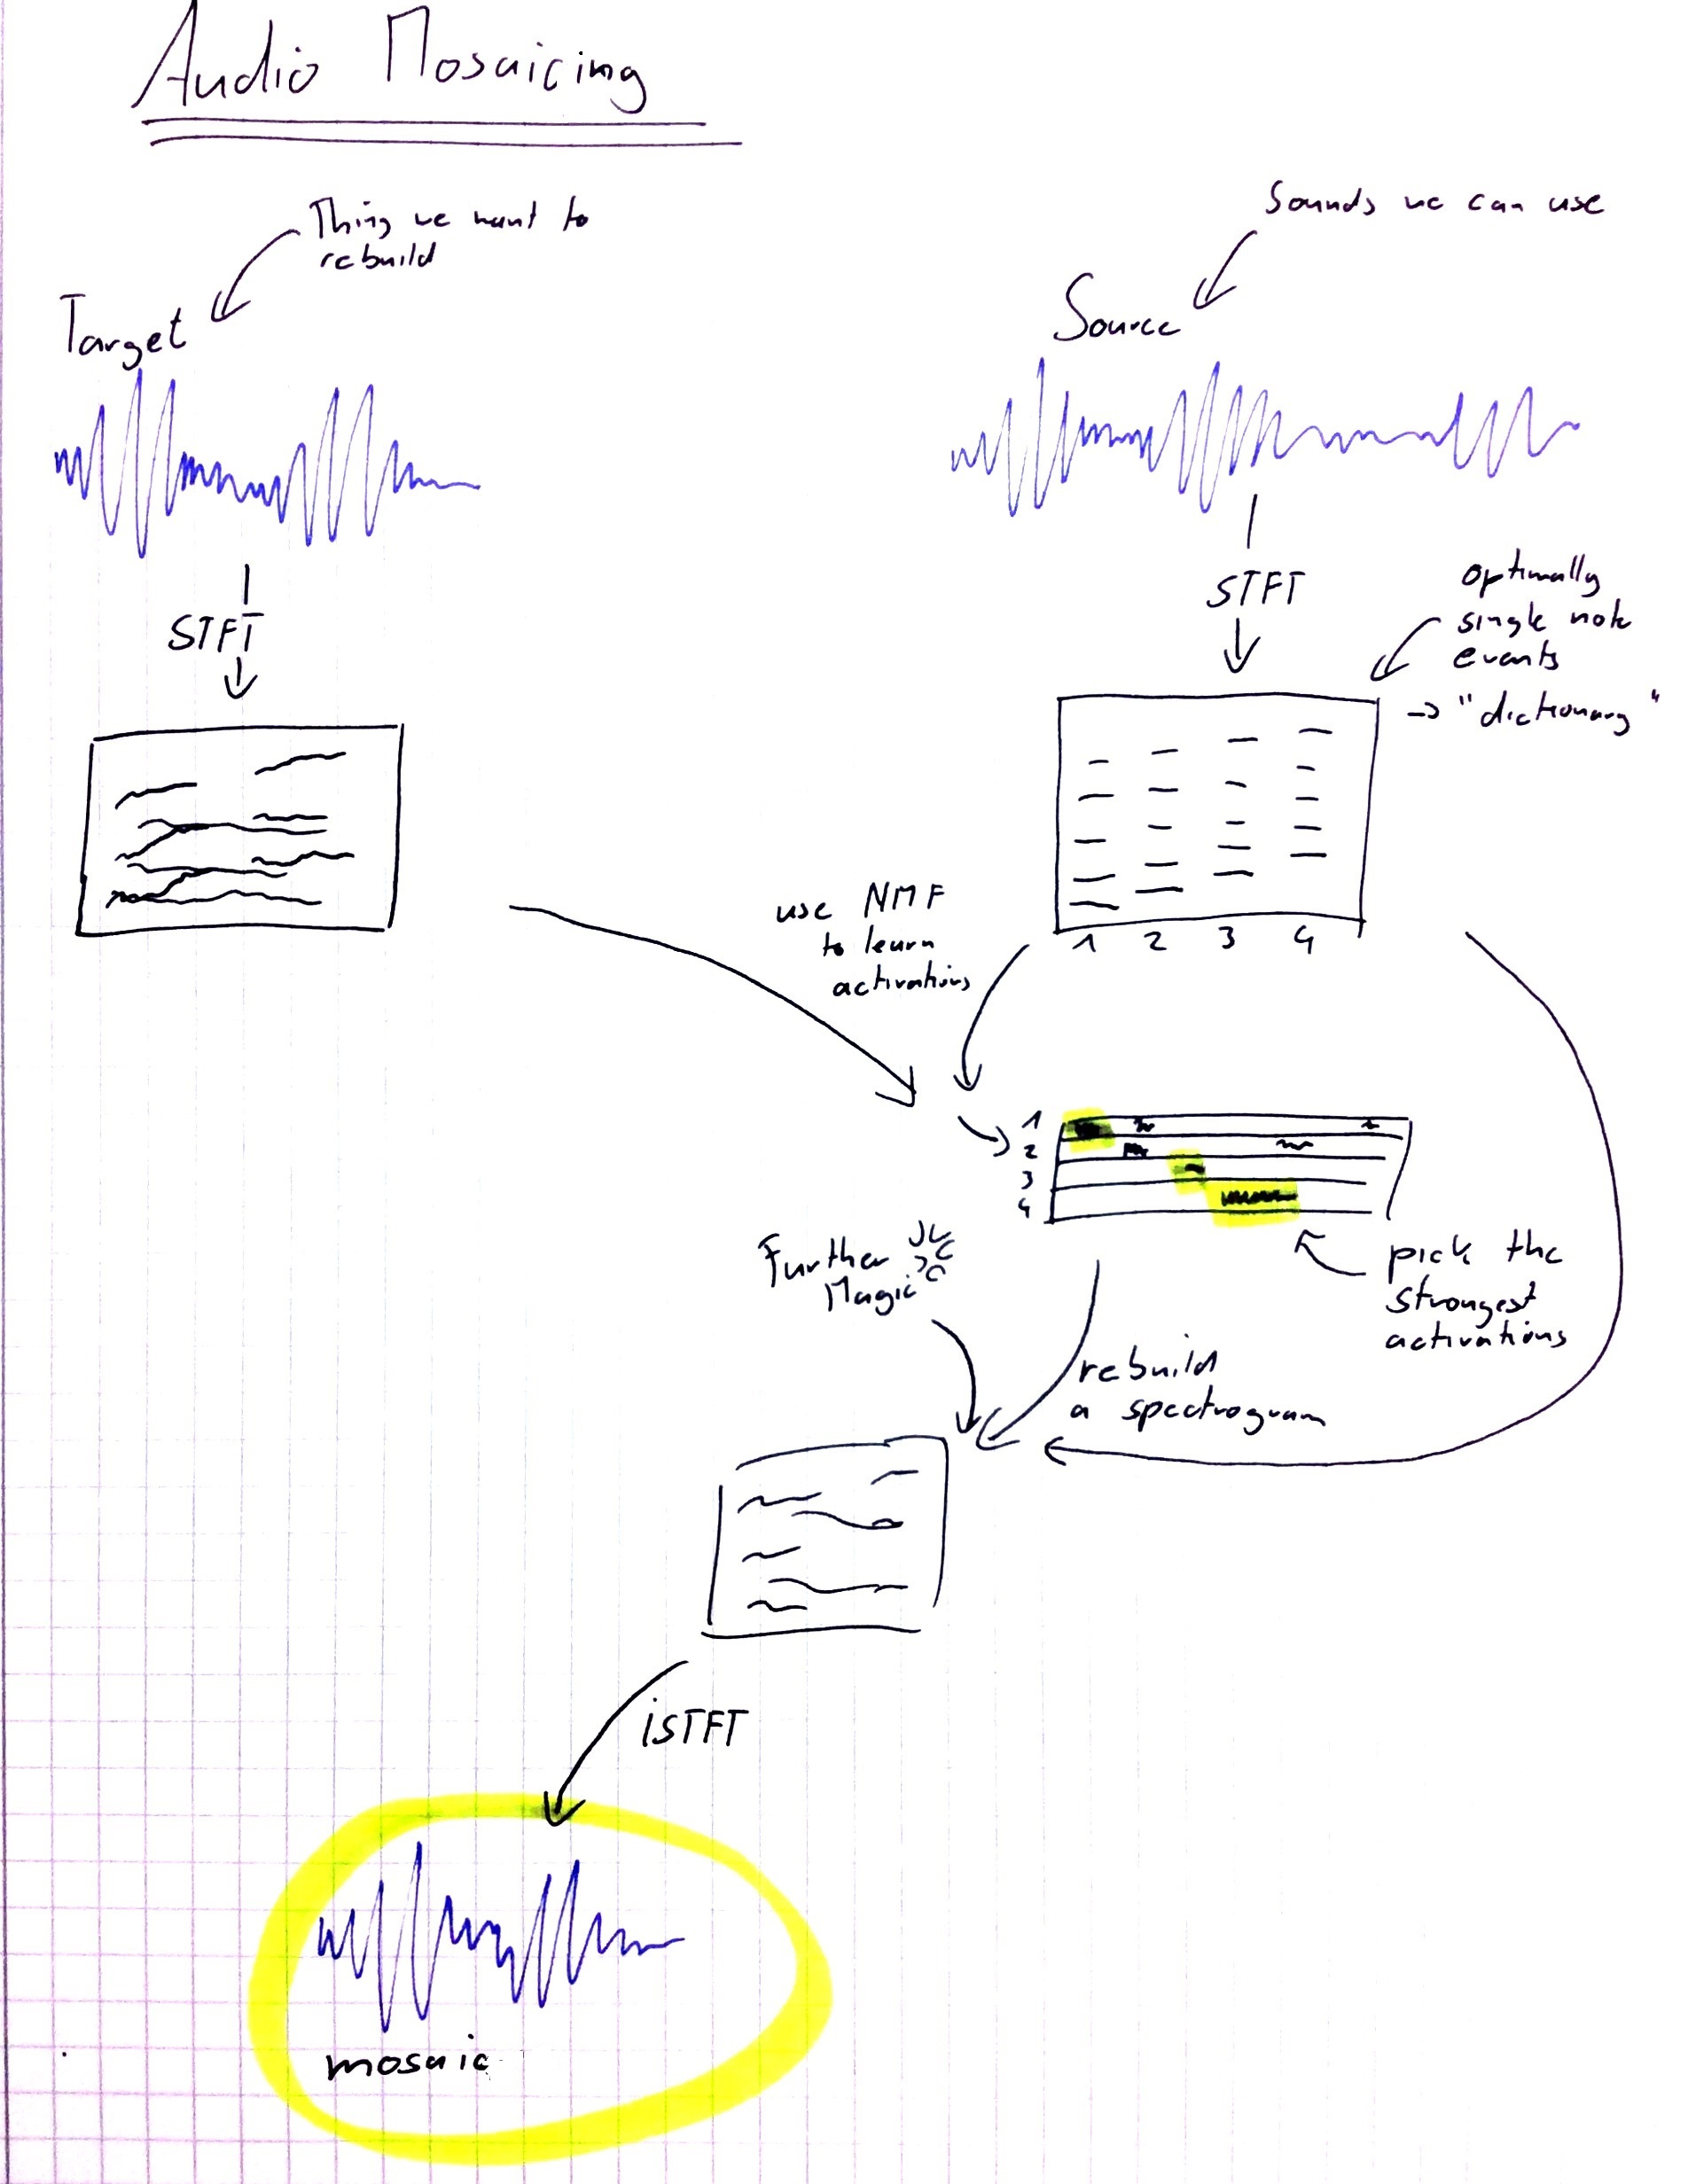 Audio Mosaicing
Thing we want to
rebuild
Target
STFT
Sounds we can use
Source
STFT
optimally
single note
events
-> "dictionary"
1 2 3 4
use NMF
to learn
activations
1
2
3
4
pick the
strongest
activations
Further
Magic
rebuild
a spectrogram
iSTFT
mosaic